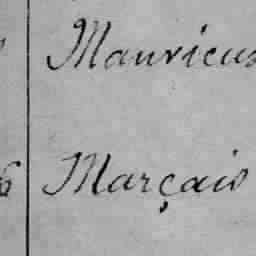 Mauricus
6 Marçais